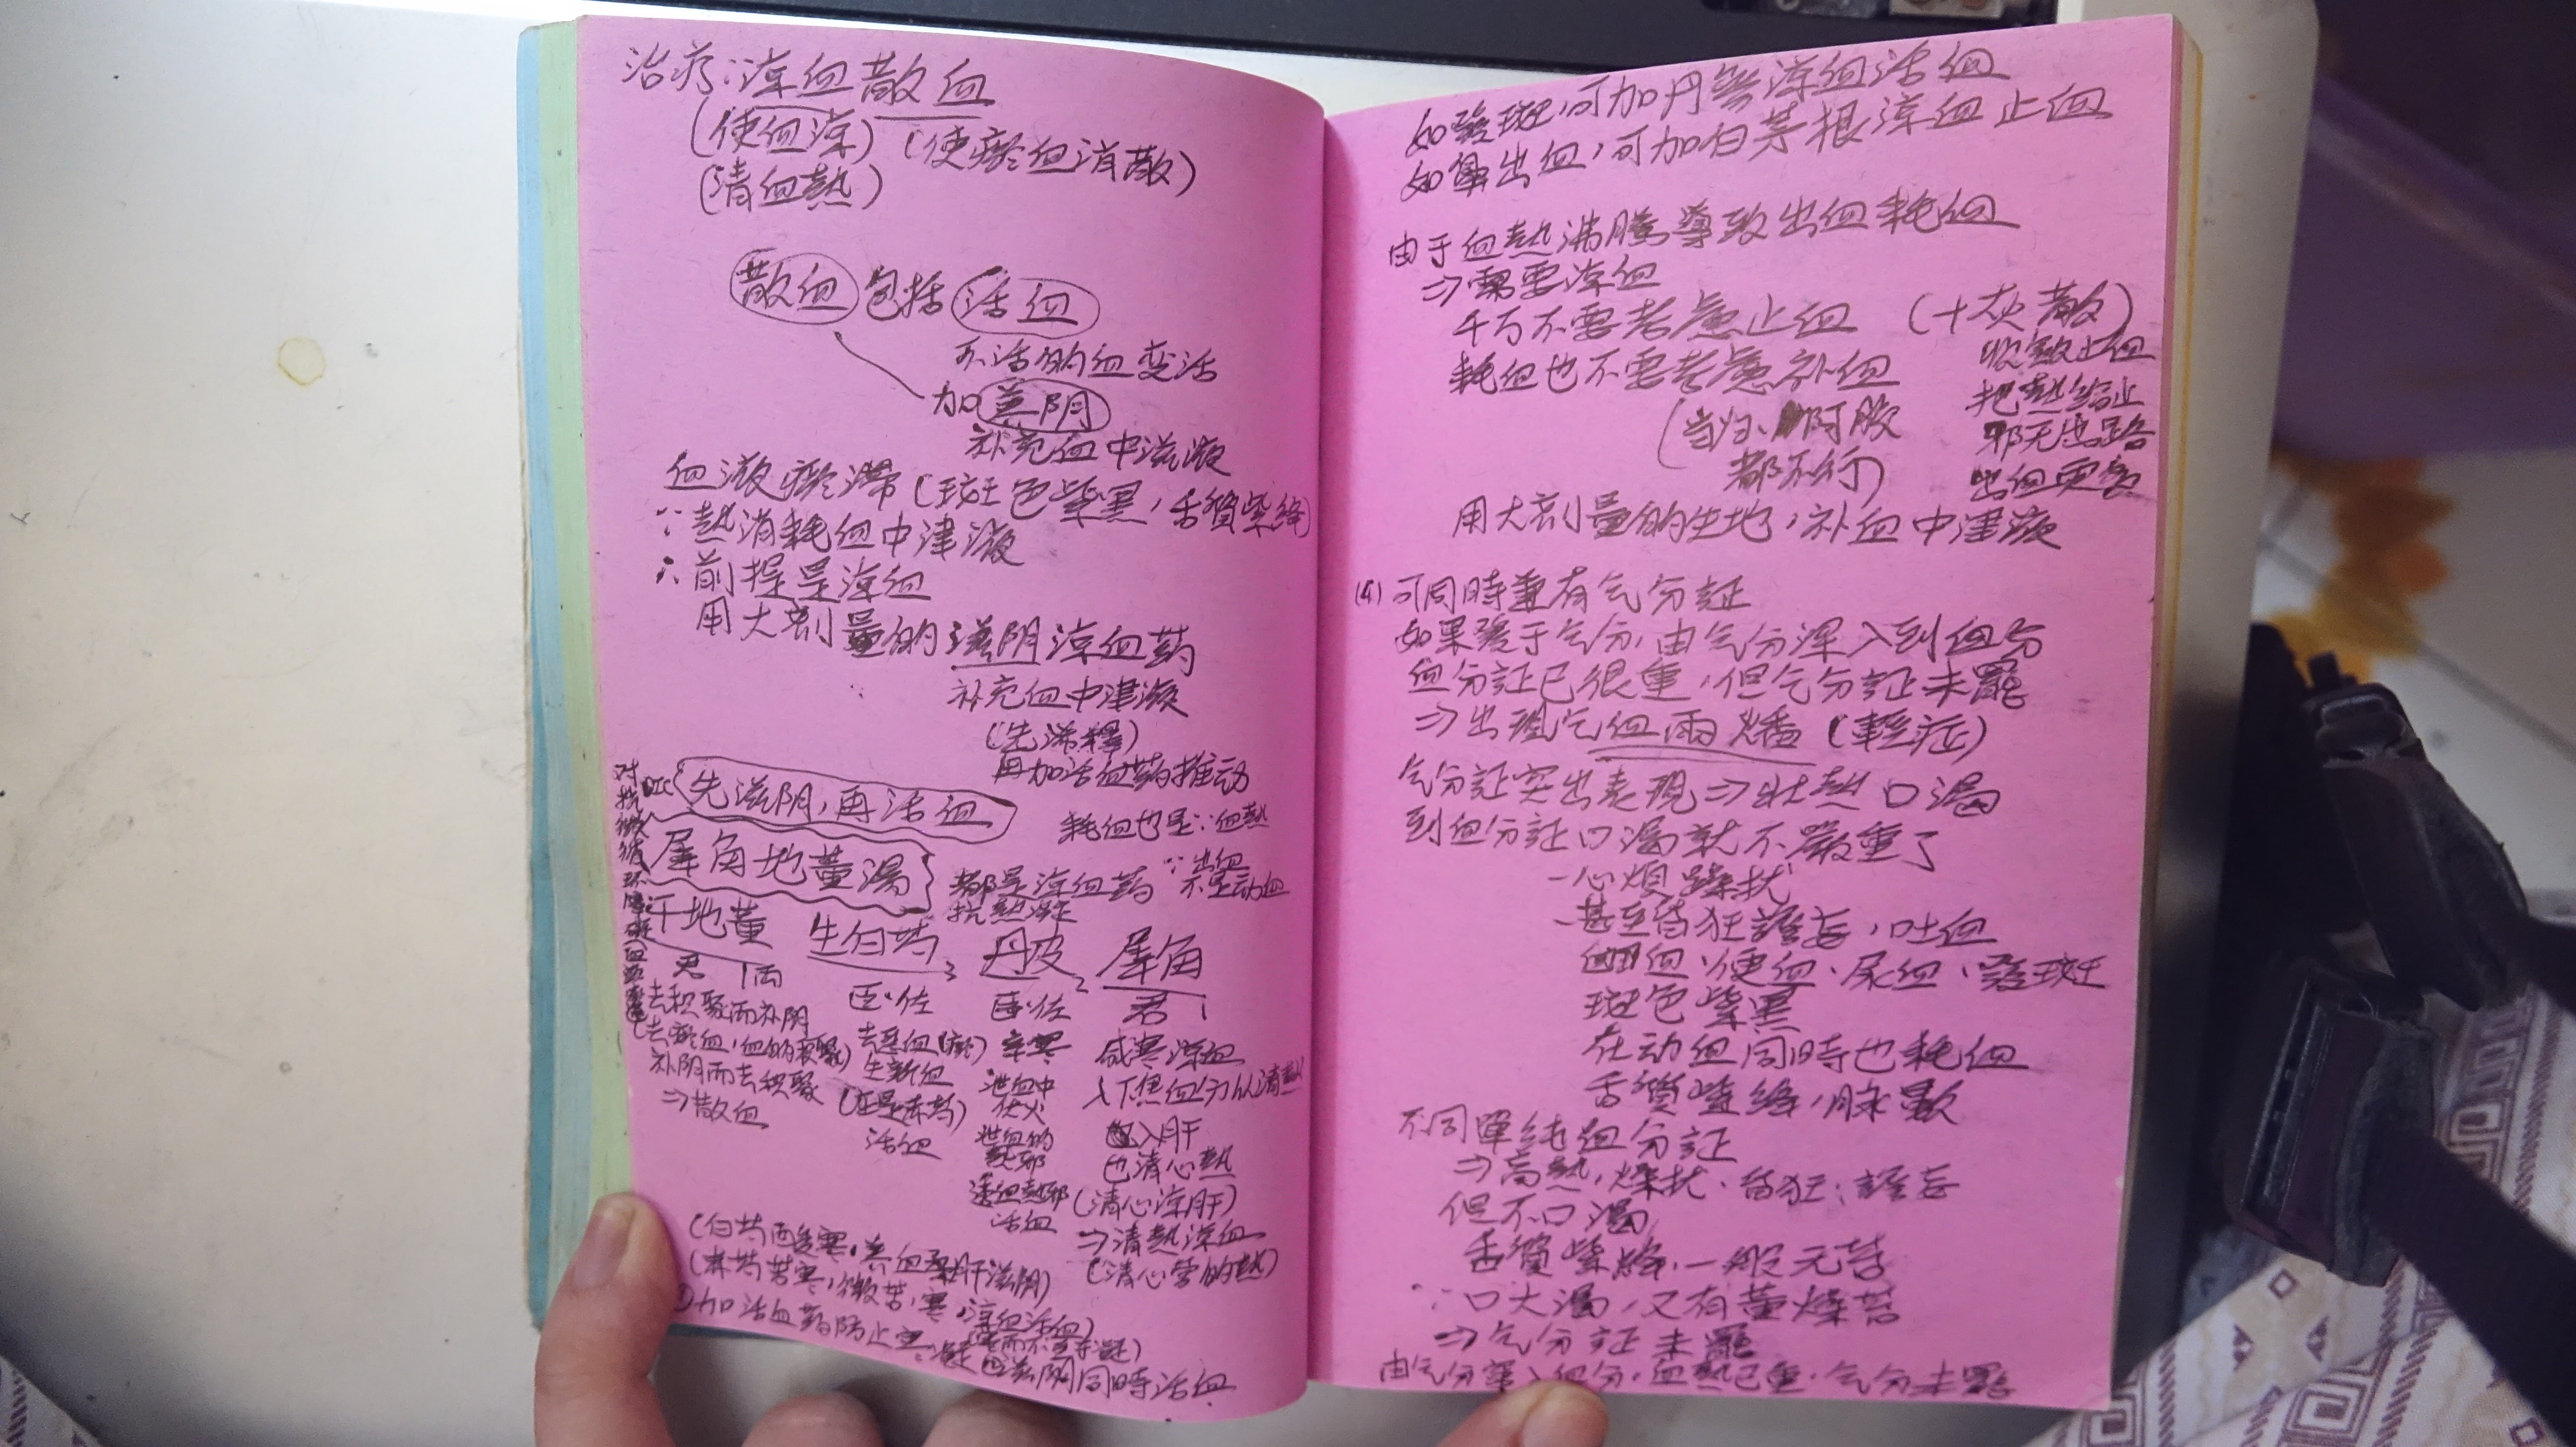 治疗：凉血散血
(使血凉) (使瘀血消散)
(清血熱)
散血 包括 活血
不活的血变活
加 养阴
补充血中滋液
血液瘀滞 (斑色紫黑，舌質紫絳)
∵熱消耗血中津液
∴前提是凉血
用大剂量的滋阴凉血药
补充血中津液
(先稀釋)
再加活血药推动
DIC 先滋阴，再活血
对抗微循环障碍
耗血也是∵血熱
犀角地黄湯
都是凉血药
∵出血
不是动血
抗熱凝
干地黄 生白芍3 丹皮2 犀角1
君 1両 臣、佐 臣、佐 君
去积聚而补阴
(去瘀血，血的积聚)
补阴而去积聚
⇒散血
去惡血(瘀)
生新血
(应是赤芍)
活血
辛寒
泄血中
伏火
泄血的
熱邪
透血熱邪
活血
咸寒凉血
入下焦血分以清熱
入肝
也清心熱
(清心凉肝)
⇒清熱凉血
(清心营的熱)
(白芍酉安寒，养血柔肝滋阴)
(赤芍苦寒，微苦，寒，凉血活血)
加活血药防止寒凝
滋阴同時活血
如發斑，可加丹參凉血活血
如單出血，可加白茅根凉血止血
由于血熱沸騰導致出血耗血
⇒需要凉血
千万不要考慮止血 (十灰散)
收斂止血
耗血也不要考慮补血
把熱給止
(当归、阿胶
都不行)
邪无出路
出血更重
用大剂量的生地，补血中津液
(4) 可同時兼有气分証
如果發于气分，由气分深入到血分
血分証已很重，但气分証未罷
⇒出現气血兩燔 (重症)
气分証突出表現⇒壮熱口渴
到血分証口渴就不嚴重了
-心煩躁扰
-甚至昏狂譫妄，吐血
衄血、便血、尿血、發斑
斑色紫黑
在动血同時也耗血
舌質紫絳，脉數
不同單純血分証
⇒高熱，燥扰、昏狂、譫妄
但不口渴
舌質紫絳，一般无苔
∵口大渴，又有黄燥苔
⇒气分証未罷
由气分深入血分，血熱已重，气分未罷